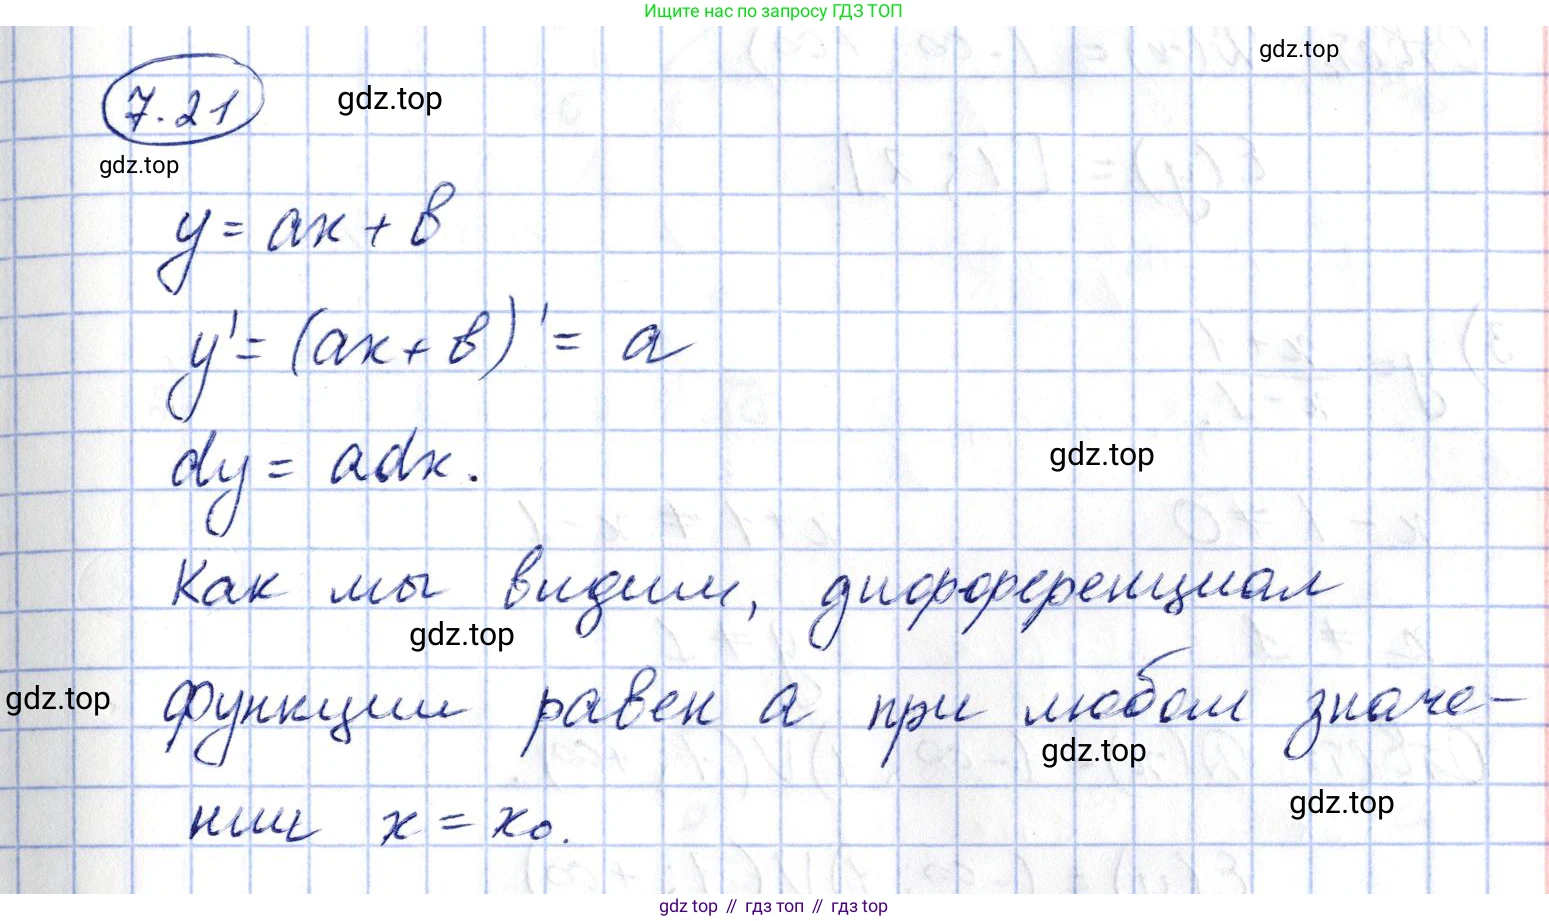 Ищите нас по запросу ГДЗ ТОП
gdz.top
7.21
gdz.top
gdz.top
y = ax + b
y' = (ax + b)' = a
gdz.top
dy = adx.
Как мы видим, дифференциал
gdz.top
gdz.top
функции равен a при любом значе-
gdz.top
gdz.top
нии x = x₀.
gdz top // гдз топ // гдз top